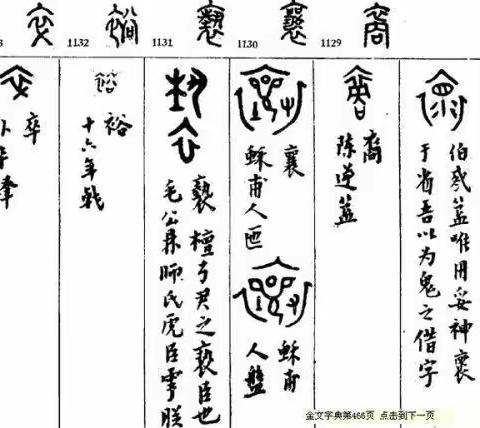 伯㦰簋唯用妥神褱
于省吾以为鬼之借字
1129
裔
陈逆簋
1130
襄
稣甫人匜
稣甫
人盤
1131
褻 檀弓君之褻臣也
毛公鼎師氏虎臣雩朕
1132
裕
十六年戟
卒
金文字典第466页 点击到下一页